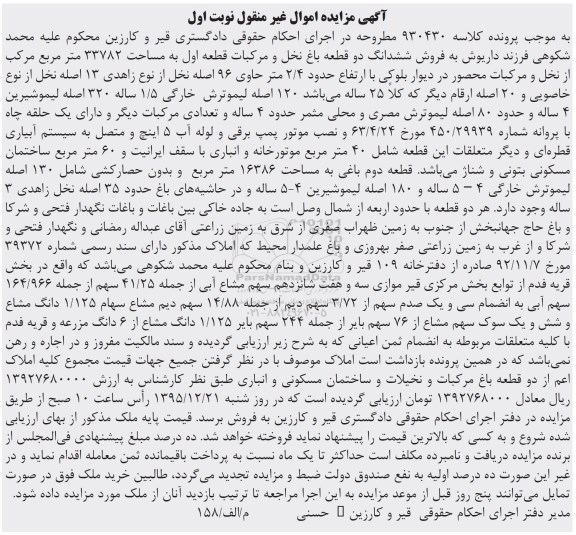 آگهی مزایده اموال غیر منقول نوبت اول
به موجب پرونده کلاسه ۹۳۰۴۳۰ مطروحه در اجرای احکام حقوقی دادگستری قیر و کارزین محکوم علیه محمد
شکوهی فرزند داریوش به فروش ششدانگ دو قطعه باغ نخل و مرکبات قطعه اول به مساحت ۳۳۷۸۲ متر مربع مرکب
از نخل و مرکبات محصور در دیوار بلوکی با ارتفاع حدود ۲/۴ متر حاوی ۹۶ اصله نخل از نوع زاهدی ۱۳ اصله نخل از نوع
خاصویی و ۲۰ اصله ارقام دیگر که کلا ۲۵ ساله می‌باشد ۱۲۰ اصله لیموترش خارگی ۱/۵ ساله ۳۲۰ اصله لیموشیرین
۴ ساله و حدود ۸۰ اصله لیموترش مصری و محلی مثمر حدود ۴ ساله و تعدادی مرکبات دیگر و دارای یک حلقه چاه
با پروانه شماره ۴۵۰/۲۹۹۳۹ مورخ ۶۳/۴/۲۴ و نصب موتور پمپ برقی و لوله آب ۵ اینچ و متصل به سیستم آبیاری
قطره‌ای و دیگر متعلقات این قطعه شامل ۴۰ متر مربع موتورخانه و انباری با سقف ایرانیت و ۶۰ متر مربع ساختمان
مسکونی بتونی و شناژ می‌باشد. قطعه دوم باغی به مساحت ۱۶۳۸۶ متر مربع و بدون حصارکشی شامل ۱۳۰ اصله
لیموترش خارگی ۴ – ۵ ساله و ۱۸۰ اصله لیموشیرین ۴-۵ ساله و در حاشیه‌های باغ حدود ۳۵ اصله نخل زاهدی ۳
ساله وجود دارد. هر دو قطعه با حدود اربعه از شمال وصل است به جاده خاکی بین باغات و باغات نگهدار فتحی و شرکا
و باغ حاج جهانبخش از جنوب به زمین ظهراب صفری از شرق به زمین زراعتی آقای عبداله رمضانی و نگهدار فتحی و
شرکا و از غرب به زمین زراعتی صفر بهروزی و باغ علمدار محیط که املاک مذکور دارای سند رسمی شماره ۳۹۳۷۲
مورخ ۹۲/۱۱/۷ صادره از دفترخانه ۱۰۹ قیر و کارزین و بنام محکوم علیه محمد شکوهی می‌باشد که واقع در بخش
قریه فدم از توابع بخش مرکزی قیر موازی سه و هفت شانزدهم سهم مشاع آبی از جمله ۴۱/۲۵ سهم از جمله ۱۶۴/۹۶۶
سهم آبی به انضمام سی و یک صدم سهم از ۳/۷۲ سهم دیم از جمله ۱۴/۸۸ سهم دیم مشاع سهام ۱/۱۲۵ دانگ مشاع
و شش و یک سوک سهم مشاع از ۷۶ سهم بایر از جمله ۲۴۴ سهم بایر ۱/۱۲۵ دانگ مشاع از ۶ دانگ مزرعه و قریه فدم
با کلیه متعلقات مربوطه به انضمام ثمن اعیانی که به شرح زیر ارزیابی گردیده و سند مالکیت مفروز و در اجاره و رهن
نمی‌باشد که در همین پرونده بازداشت است املاک موصوف با در نظر گرفتن جمیع جهات قیمت مجموع کلیه املاک
اعم از دو قطعه باغ مرکبات و نخیلات و ساختمان مسکونی و انباری طبق نظر کارشناس به ارزش ۱۳۹۲۷۶۸۰۰۰۰
ریال معادل ۱۳۹۲۷۶۸۰۰۰ تومان ارزیابی گردیده است که در روز شنبه ۱۳۹۵/۱۲/۲۱ رأس ساعت ۱۰ صبح از طریق
مزایده در دفتر اجرای احکام حقوقی دادگستری قیر و کارزین به فروش برسد. قیمت پایه ملک مذکور از بهای ارزیابی
شده شروع و به کسی که بالاترین قیمت را پیشنهاد نماید فروخته خواهد شد. ده درصد مبلغ پیشنهادی فی‌المجلس از
برنده مزایده دریافت و نامبرده مکلف است حداکثر تا یک ماه نسبت به پرداخت باقیمانده ثمن معامله اقدام نماید و در
غیر این صورت ده درصد اولیه به نفع صندوق دولت ضبط و مزایده تجدید می‌گردد، طالبین خرید ملک فوق در صورت
تمایل می‌توانند پنج روز قبل از موعد مزایده به این اجرا مراجعه تا ترتیب بازدید آنان از ملک مورد مزایده داده شود.
مدیر دفتر اجرای احکام حقوقی قیر و کارزین حسنی م/الف/۱۵۸